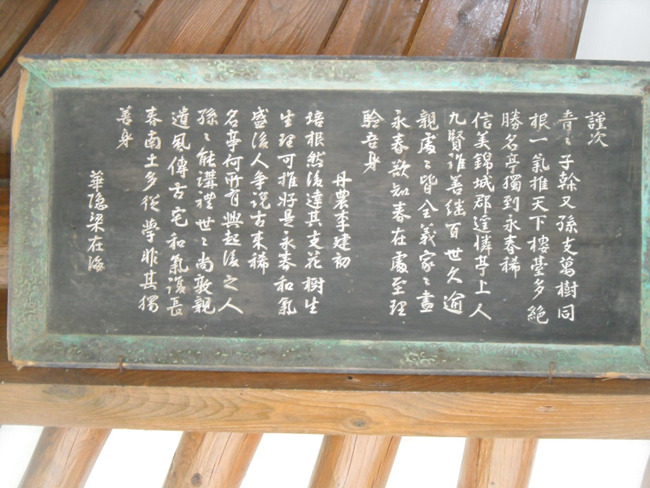 謹次
青〻子榦又孫支萬樹同
根一氣推天下樓臺多絶
勝名亭獨到永春稀
信美錦城郡這憐亭上人
九賢誰善継百世久逾
親處〻皆全義家〻盡
永春欲知春在處至理
驗吾身
丹農李建初
培根然後達其支花樹生
生理可推好是永春和氣
盛後人争説古来稀
名亭何所有興起後之人
孫〻能講禮世〻尚敦親
遺風傳古宅和氣護長
春南土多從學非其獨
善身
華隱梁在海